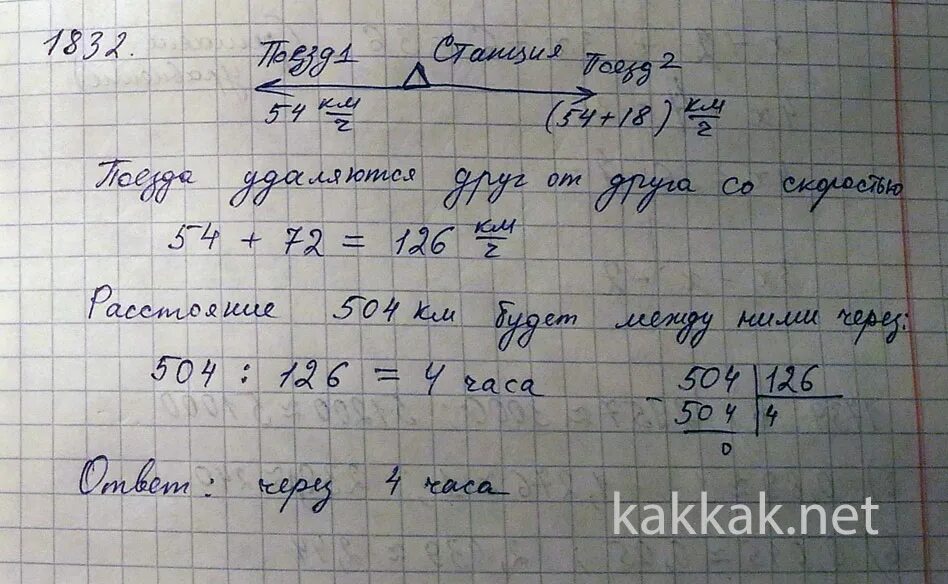 1832.
Поезд 1 Станция Поезд 2
54 км/ч (54+18) км/ч
Поезда удаляются друг от друга со скоростью
54 + 72 = 126 км/ч
Расстояние 504 км будет между ними через:
504 : 126 = 4 часа
504 | 126
- 504 | 4
0
Ответ: через 4 часа
kakkak.net